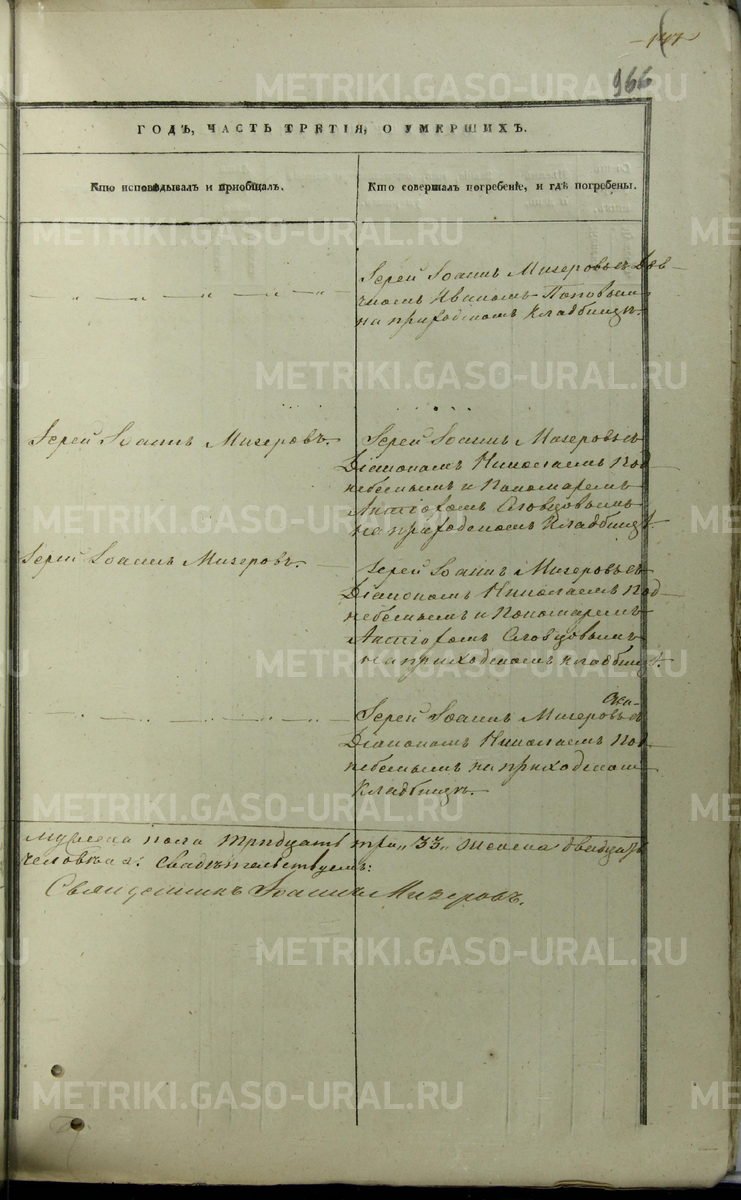 147
966
ГОДЪ, ЧАСТЬ ТРЕТІЯ, О УМЕРШИХЪ.
Кто исповѣдывалъ и пріобщалъ.
Кто совершалъ погребеніе, и гдѣ погребены.
Іерей Іоаннъ Мизеровъ съ
Иваномъ Поповымъ
на приходскомъ кладбищѣ.
Іерей Іоаннъ Мизеровъ.
Іерей Іоаннъ Мизеровъ съ
Діакономъ Николаемъ Под
небеснымъ и Пономаремъ
Словцовымъ
на приходскомъ кладбищѣ.
Іерей Іоаннъ Мизеровъ.
Іерей Іоаннъ Мизеровъ съ
Діакономъ Николаемъ Под
небеснымъ и Пономаремъ
Словцовымъ
на приходскомъ кладбищѣ.
Іерей Іоаннъ Мизеровъ съ
Діакономъ Николаемъ Под
небеснымъ на приходском
кладбищѣ.
мужеска пола тридцать три „33„ женска двадцать
человѣка: свидѣтельствуемъ:
Священникъ Іоаннъ Мизеровъ.
METRIKI.GASO-URAL.RU